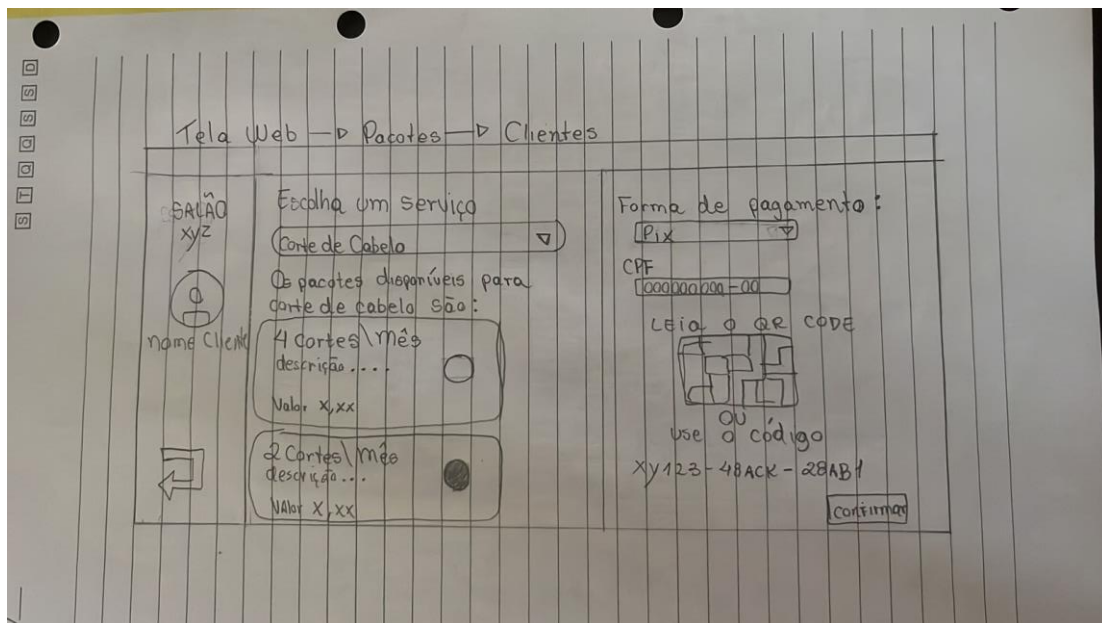 Tela Web → Pacotes → Clientes
SALÃO
xyz
nome Cliente
Escolha um serviço
Corte de Cabelo
Os pacotes disponíveis para
corte de cabelo são:
4 cortes\mês
descrição....
Valor x,xx
2 Cortes\mês
descrição...
VAlor X,xx
Forma de pagamento:
Pix
CPF
000000000-00
LEia o QR CODE
OU
use o código
XY123-48ACK-28AB1
confirmar
D
S
S
Q
Q
T
S